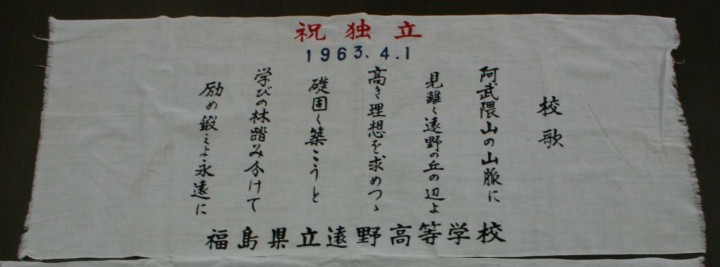 祝独立
1963.4.1
校歌
阿武隈山の山脈に
見離く遠野の丘の辺よ
高き理想を求めつゝ
礎固く築こうと
学びの林踏み分けて
励め鍛えよ永遠に
福島県立遠野高等学校